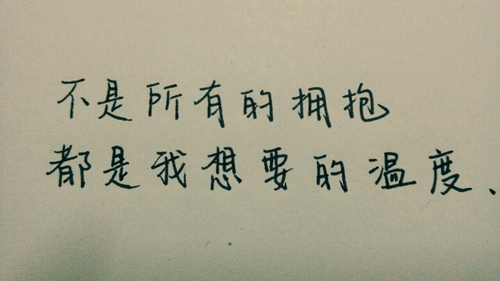 不是所有的拥抱
都是我想要的温度、